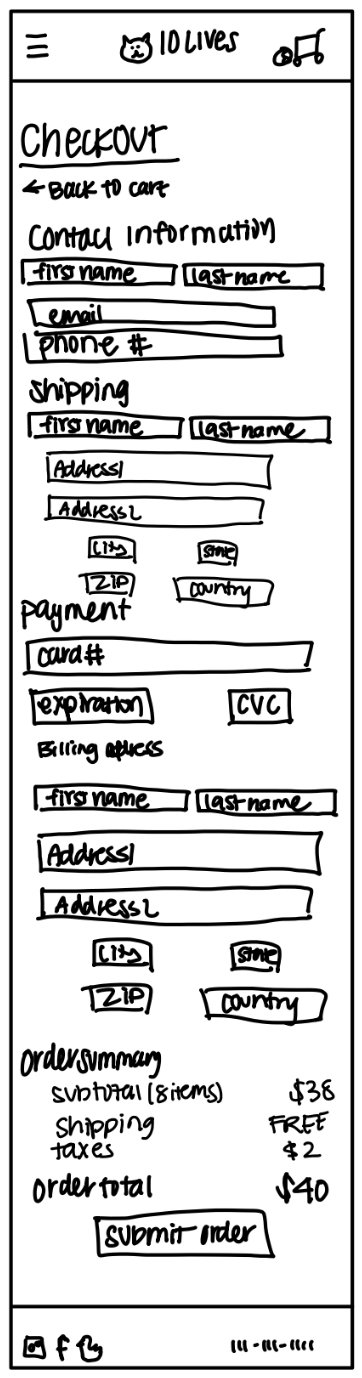 10 LIVES
Checkout
← Back to cart
Contact Information
first name last name
email
phone #
Shipping
first name last name
Address1
Address2
City State
ZIP country
payment
card#
expiration CVC
Billing address
first name last name
Address1
Address2
City State
ZIP country
order summary
subtotal (8 items) $38
shipping FREE
taxes $2
order total $40
submit order
f 111-111-1111